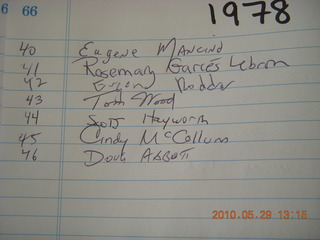 6 66 1978
40 Eugene Mancino
41 Rosemary Garcés Lebron
42
43 Tom Wood
44 Scott Heyworth
45 Cindy McCollum
46 Doug Abbott
2010.05.29 13:15